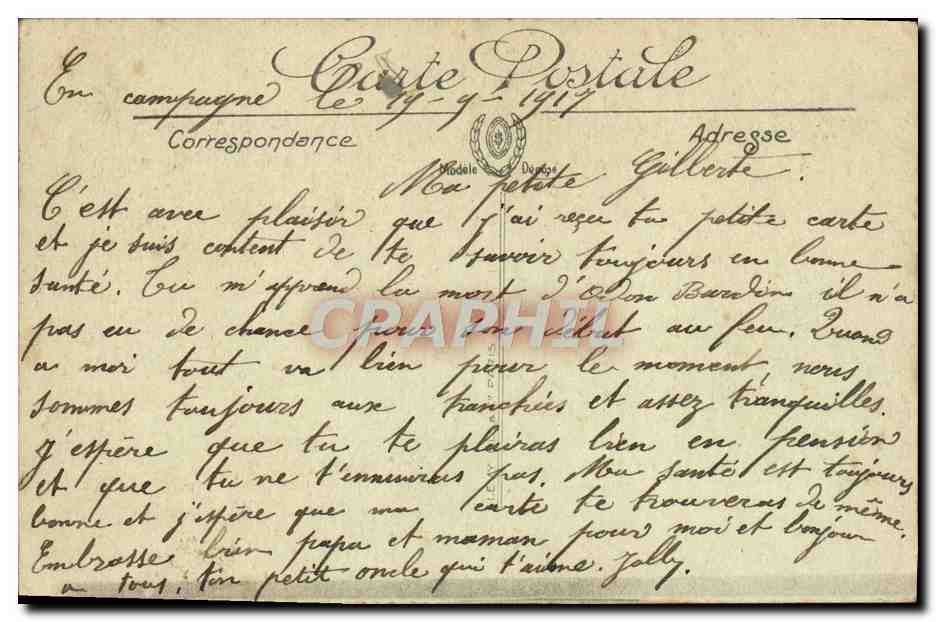 Carte Postale
En campagne le 19-9-1917
Correspondance
Adresse
Modèle Déposé
Ma petite Gilberte.
C'est avec plaisir que j'ai reçu ta petite carte
et je suis content de te savoir toujours en bonne
santé. Tu m'apprend la mort d'Odon Bardin il n'a
pas eu de chance pour son début au feu. Quand
a moi tout va bien pour le moment, nous
sommes toujours aux tranchées et assez tranquilles.
J'espère que tu te plairas bien en pension
et que tu ne t'ennuiras pas. Ma santé est toujours
bonne et j'espère que ma carte te trouveras de même.
Embrasse bien papa et maman pour moi et bonjour
a tous, ton petit oncle qui t'aime. Jolly.
CPAPHIL
PARIS